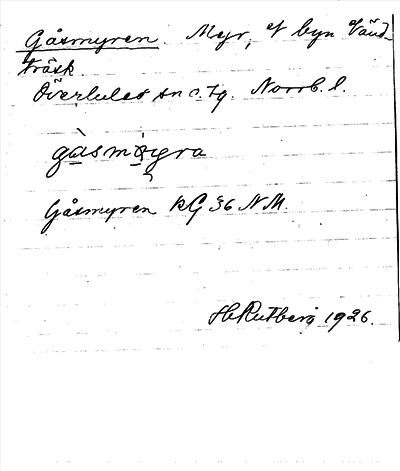 Gåsmyren. Myr, i byn Vänd-
träsk.
Överluleå sn o. tg. Norrb. l.
gàsmøyra
Gåsmyren kG 36 NM.
H. Rutberg 1926.